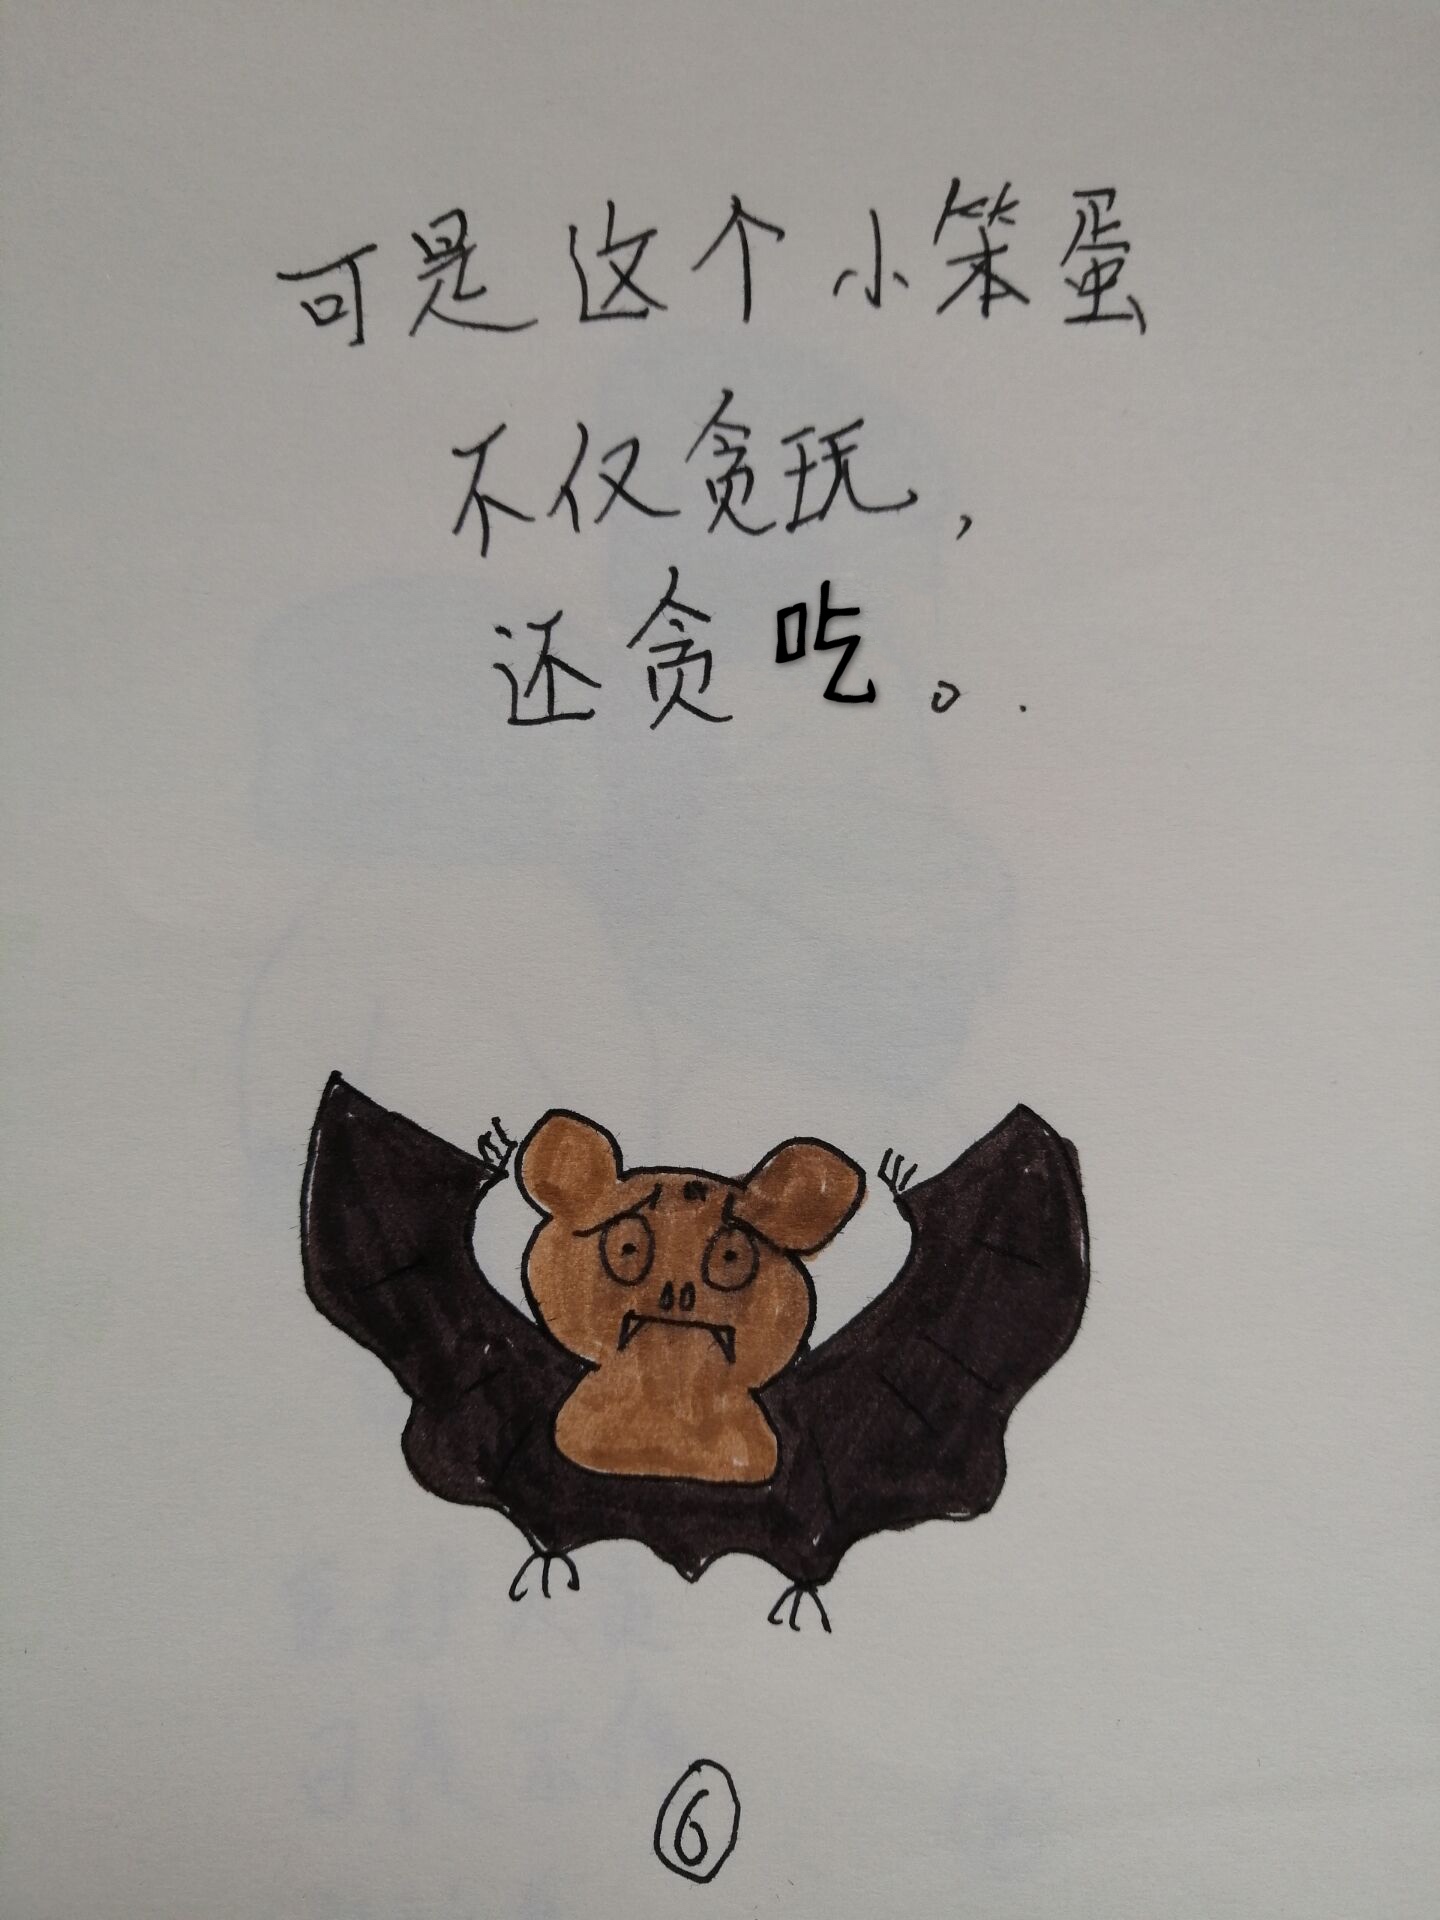 可是这个小笨蛋
不仅贪玩，
还贪吃。
⑥